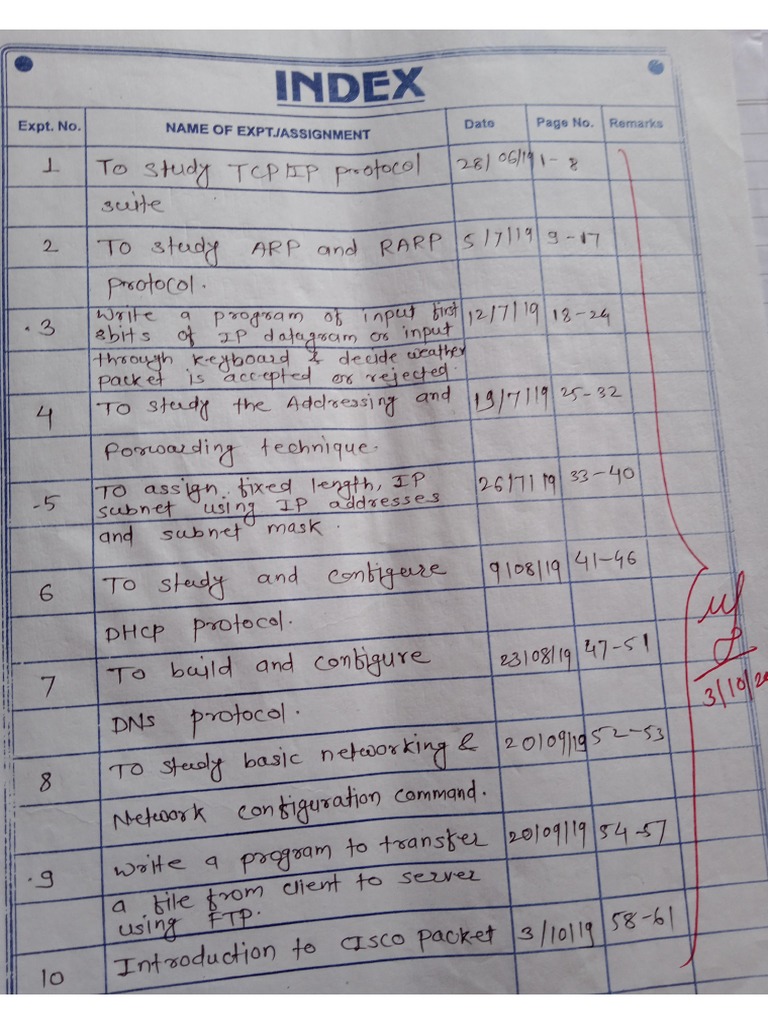 INDEX
Expt. No. NAME OF EXPT./ASSIGNMENT Date Page No. Remarks
1 To study TCP/IP protocol 28/06/19 1-8
suite
2 To study ARP and RARP 5/7/19 9-17
protocol.
3 Write a program of input first 12/7/19 18-24
8bits of IP datagram or input
through keyboard & decide weather
packet is accepted or rejected.
4 To study the Addressing and 19/7/19 25-32
Forwarding technique.
5 To assign fixed length, IP 26/7/19 33-40
subnet using IP addresses
and subnet mask.
6 To study and configure 9/08/19 41-46
DHCP protocol.
7 To build and configure 23/08/19 47-51
DNS protocol.
8 To study basic networking & 20/09/19 52-53
Network configuration command.
9 Write a program to transfer 20/09/19 54-57
a file from client to server
using FTP.
10 Introduction to CISCO packet 3/10/19 58-61
3/10/20